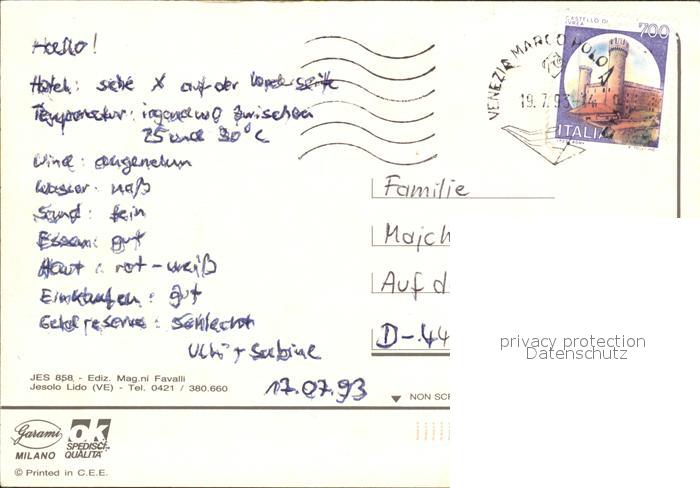 Hallo!
Hotel: siehe X auf der Vorderseite
Temperatur: irgendwo zwischen
25 und 30°C
Wind: angenehm
Wasser: naß
Sand: fein
Essen: gut
Haut: rot-weiß
Einkaufen: gut
Geldreserve: schlecht
+ Sabine
17.07.93
JES 858 - Ediz. Mag.ni Favalli
Jesolo Lido (VE) - Tel. 0421 / 380.660
Garami
MILANO
ok
SPEDISCI
QUALITÀ
© Printed in C.E.E.
CASTELLO DI
IVREA
700
ITALIA
VENEZIA MARCO POLO
19.7.93-14
Familie
Majch
Auf d
D-44
NON SCR
privacy protection
Datenschutz